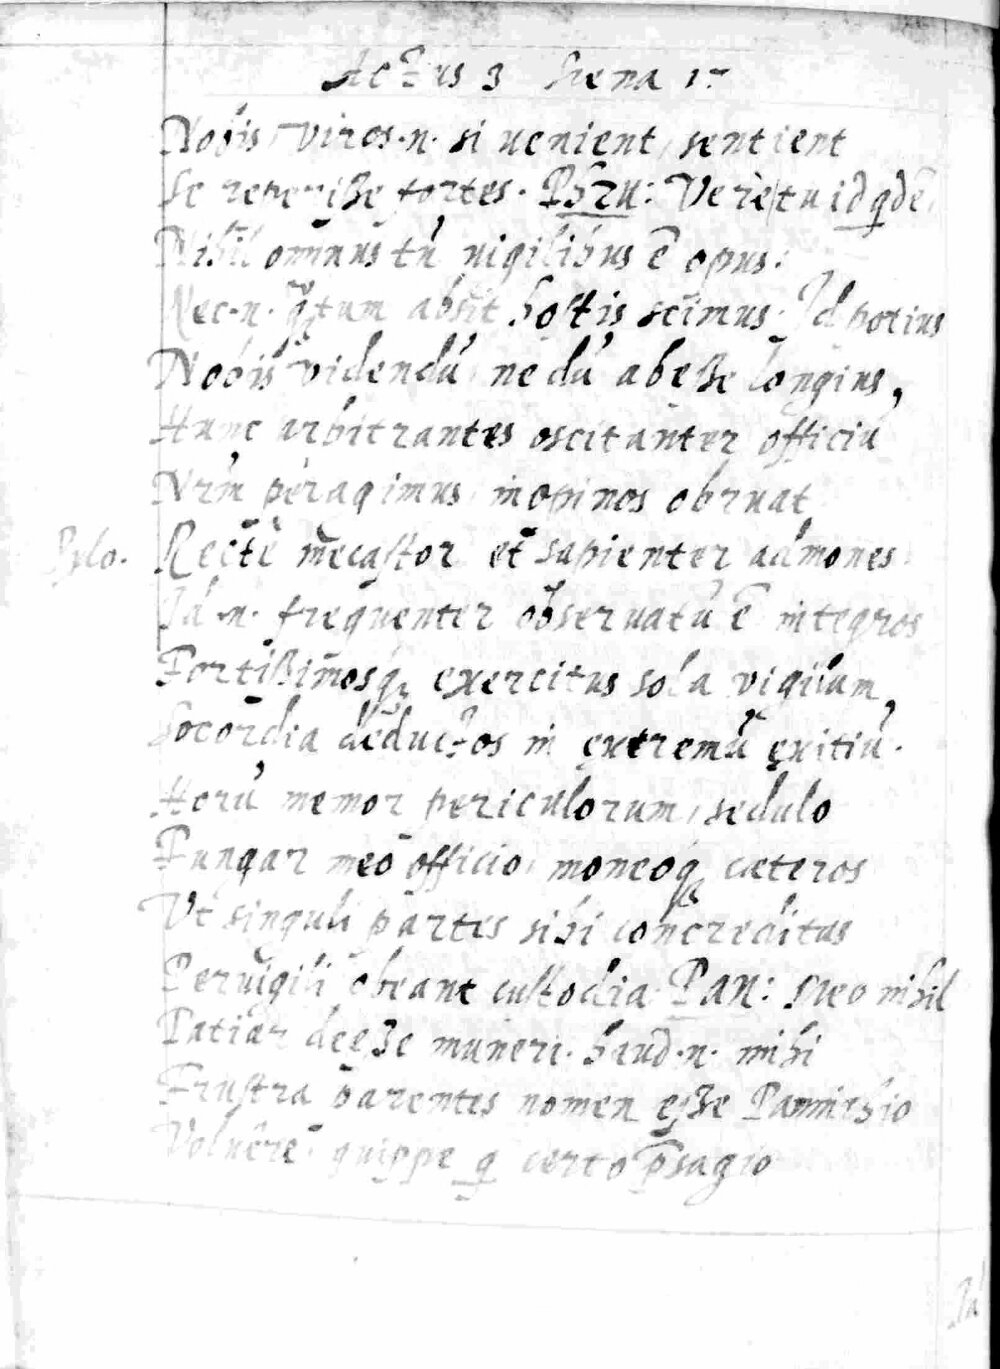 Actus 3 Scena 1ª
Nobis, viros .n. si uenient, sentient
Se reperiße fortes. Phru: Verè tu id qdē.
Nihil ominus tū uigilibus ē opus.
Nec .n. qtum absit hostis scimus. Id potius
Nobis videndū, ne dū abeße longius,
Hunc arbitrantes oscitanter officiū
Nrm̄ peragimus, inopinos obruat
Pylo. Rectè mecastor et sapienter admones.
Iā .n. frequenter obseruatū ē integros
Fortißimosq; exercitus sola vigilum,
Socordia deductos in extremū exitiū.
Horū memor periculorum, sedulo
Fungar meo officio, moneoq; cæteros
Vt singuli partes sibi concreditas
Peruigili obeant custodia. Pan: Meo nihil
Patiar deeße muneri. haud .n. mihi
Frustra parentes nomen eße Pannichio
Voluêre. quippe q certo p̄sagio